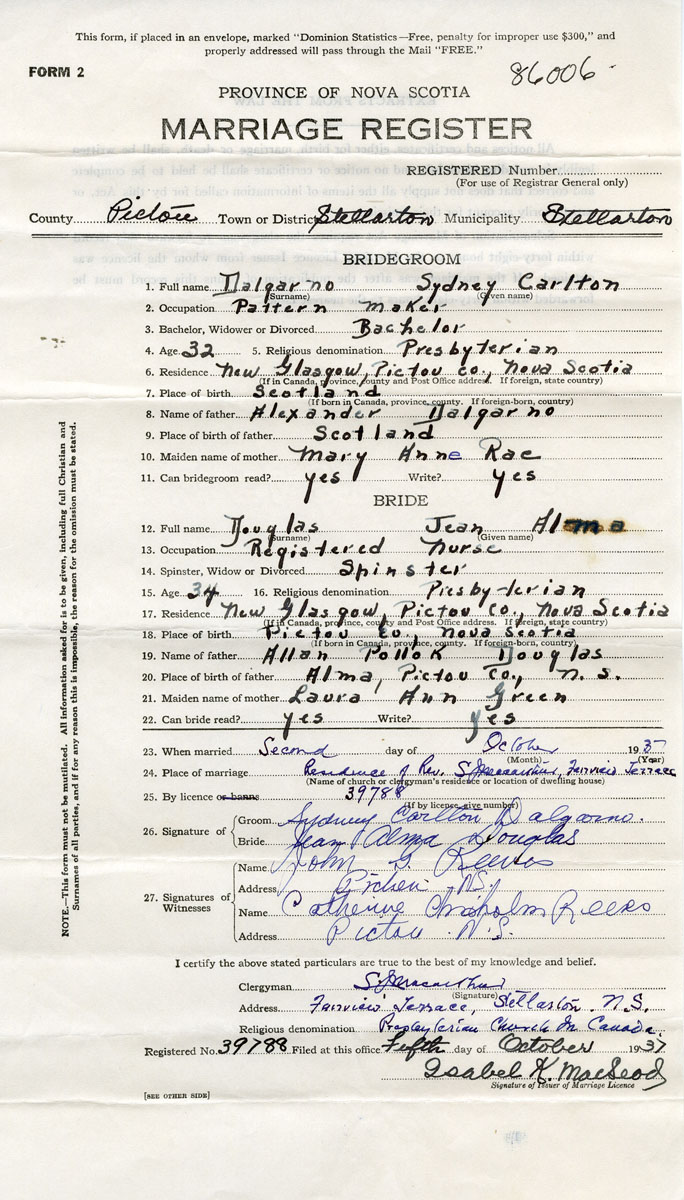 This form, if placed in an envelope, marked "Dominion Statistics—Free, penalty for improper use $300," and
properly addressed will pass through the Mail "FREE."
FORM 2
86006
PROVINCE OF NOVA SCOTIA
MARRIAGE REGISTER
REGISTERED Number
(For use of Registrar General only)
County Pictou Town or District Stellarton Municipality Stellarton
BRIDEGROOM
1. Full name Dalgarno Sydney Carlton
(Surname) (Given name)
2. Occupation Pattern Maker
3. Bachelor, Widower or Divorced Bachelor
4. Age 32 5. Religious denomination Presbyterian
6. Residence New Glasgow, Pictou Co., Nova Scotia
(If in Canada, province, county and Post Office address. If foreign, state country)
7. Place of birth Scotland
(If born in Canada, province, county. If foreign-born, country)
8. Name of father Alexander Dalgarno
9. Place of birth of father Scotland
10. Maiden name of mother Mary Anne Rae
11. Can bridegroom read? yes Write? yes
BRIDE
12. Full name Douglas Jean Alma
(Surname) (Given name)
13. Occupation Registered Nurse
14. Spinster, Widow or Divorced Spinster
15. Age 34 16. Religious denomination Presbyterian
17. Residence New Glasgow, Pictou Co., Nova Scotia
(If in Canada, province, county and Post Office address. If foreign, state country)
18. Place of birth Pictou Co., Nova Scotia
(If born in Canada, province, county. If foreign-born, country)
19. Name of father Allan Pollok Douglas
20. Place of birth of father Alma, Pictou Co., N. S.
21. Maiden name of mother Laura Ann Green
22. Can bride read? yes Write? yes
23. When married Second day of October 1937
(Month) (Year)
24. Place of marriage Residence of Rev. S J Macarthur, Fairview Terrace
(Name of church or clergyman's residence or location of dwelling house)
25. By licence or banns 39788
(If by licence, give number)
26. Signature of
Groom Sydney Carlton Dalgarno.
Bride Jean Alma Douglas
27. Signatures of Witnesses
Name John G.
Address N.S.
Name Catherine Chisholm
Address Pictou N.S.
I certify the above stated particulars are true to the best of my knowledge and belief.
Clergyman S J Macarthur
(Signature)
Address Fairview Terrace, Stellarton. N.S.
Religious denomination Presbyterian Church In Canada.
Registered No. 39788 Filed at this office Fifth day of October 1937
Isabel K. MacLeod
Signature of Issuer of Marriage Licence
[SEE OTHER SIDE]
NOTE.—This form must not be mutilated. All information asked for is to be given, including full Christian and
Surnames of all parties, and if for any reason this is impossible, the reason for the omission must be stated.